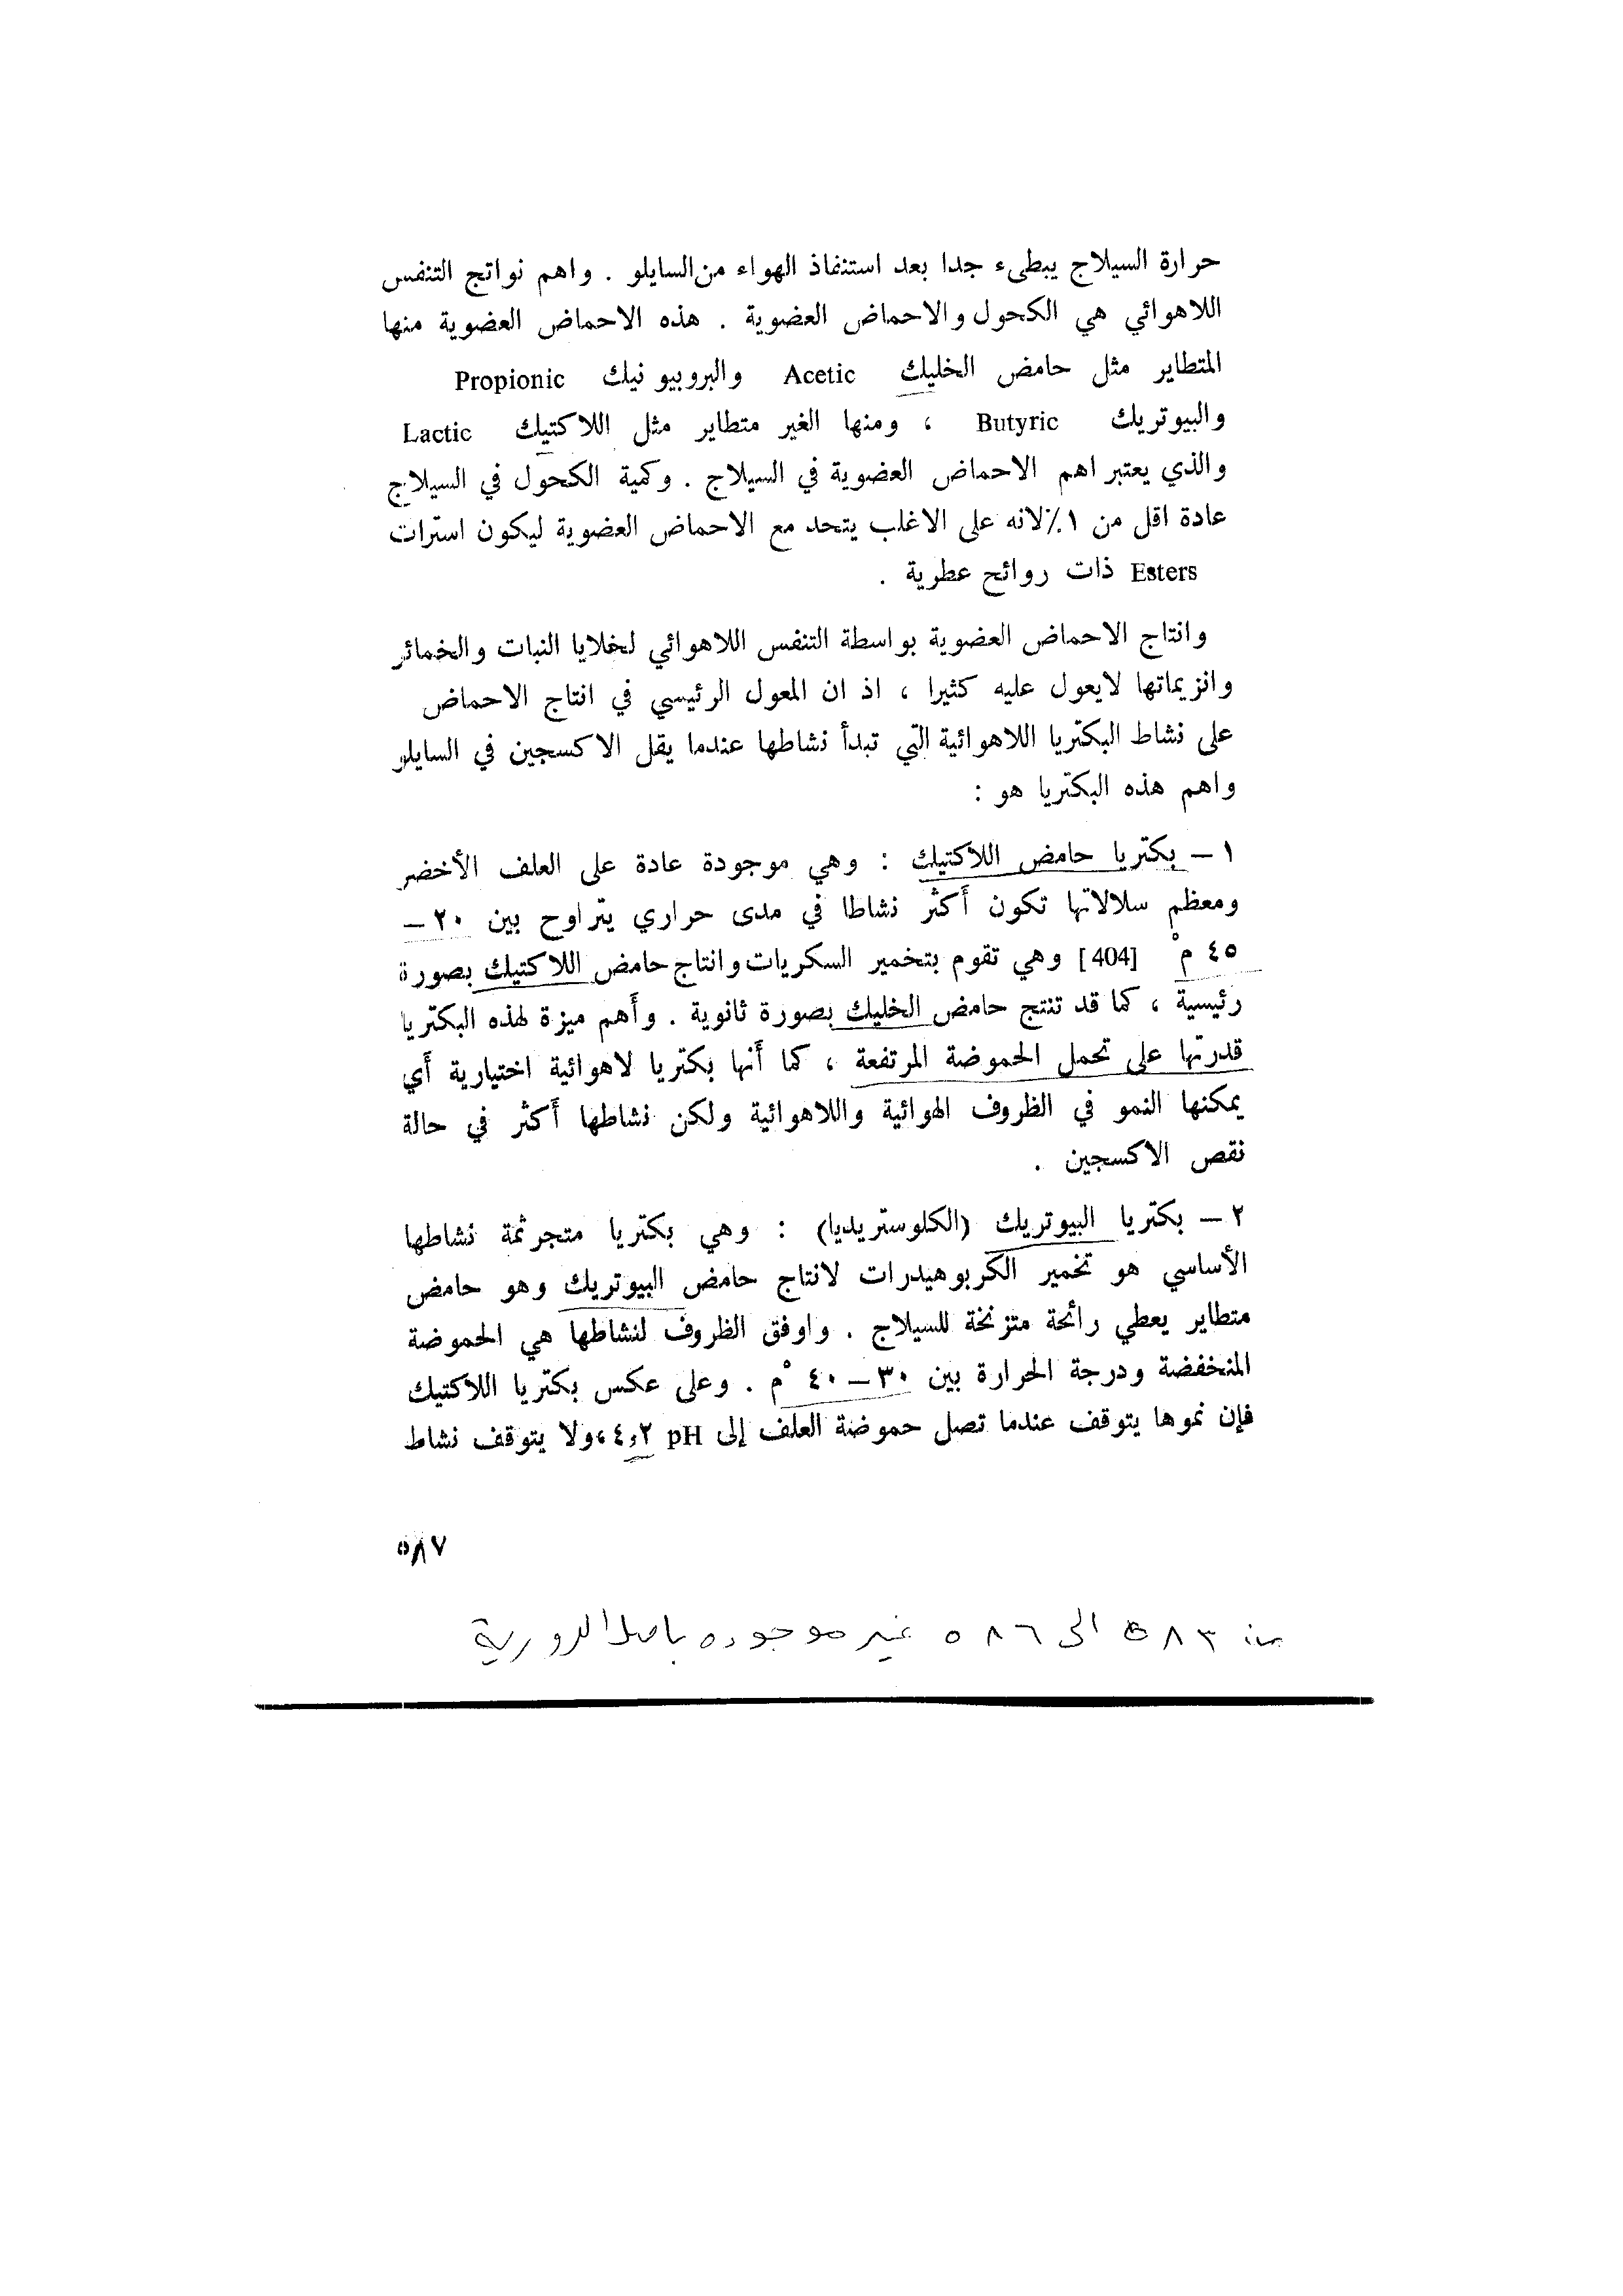 حرارة السيلاج يبطىء جدا بعد استنفاذ الهواء من السايلو . واهم نواتج التنفس
اللاهوائي هي الكحول والاحماض العضوية . هذه الاحماض العضوية منها
المتطاير مثل حامض الخليك Acetic والبروبيو نيك Propionic
والبيوتريك Butyric ، ومنها الغير متطاير مثل اللاكتيك Lactic
والذي يعتبر اهم الاحماض العضوية في السيلاج . وكمية الكحول في السيلاج
عادة اقل من ١٪ لانه على الاغلب يتحد مع الاحماض العضوية ليكون استرات
Esters ذات روائح عطرية .
وانتاج الاحماض العضوية بواسطة التنفس اللاهوائي لخلايا النبات والخمائر
وانزيماتها لايعول عليه كثيرا ، اذ ان المعول الرئيسي في انتاج الاحماض
على نشاط البكتريا اللاهوائية التي تبدأ نشاطها عندما يقل الاكسجين في السايلو
واهم هذه البكتريا هو :
١ – بكتريا حامض اللاكتيك : وهي موجودة عادة على العلف الأخضر
ومعظم سلالاتها تكون أكثر نشاطا في مدى حراري يتراوح بين ٢٠ –
٤٥ م° [404] وهي تقوم بتخمير السكريات وانتاج حامض اللاكتيك بصورة
رئيسية ، كما قد تنتج حامض الخليك بصورة ثانوية . وأهم ميزة لهذه البكتريا
قدرتها على تحمل الحموضة المرتفعة ، كما أنها بكتريا لاهوائية اختيارية أي
يمكنها النمو في الظروف الهوائية واللاهوائية ولكن نشاطها أكثر في حالة
نقص الاكسجين .
٢ – بكتريا البيوتريك (الكلوستريديا) : وهي بكتريا متجرثمة نشاطها
الأساسي هو تخمير الكربوهيدرات لانتاج حامض البيوتريك وهو حامض
متطاير يعطي رائحة متزنخة للسيلاج . واوفق الظروف لنشاطها هي الحموضة
المنخفضة ودرجة الحرارة بين ٣٠ – ٤٠ °م . وعلى عكس بكتريا اللاكتيك
فإن نموها يتوقف عندما تصل حموضة العلف إلى pH ٤,٢، ولا يتوقف نشاط
٥٨٧
من ٥٨٣ الى ٥٨٦ غير موجوده باصل الدورية